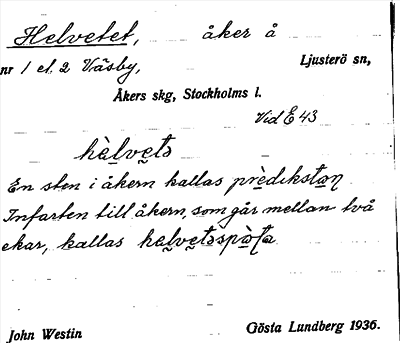 Helvetet, åker å
nr 1 el. 2 Väsby, Ljusterö sn,
Åkers skg, Stockholms l.
Vid E 43
hèlvets
En sten i åkern kallas prèdikstan
Infarten till åkern, som går mellan två
ekar, kallas helvetsspàta
John Westin Gösta Lundberg 1936.